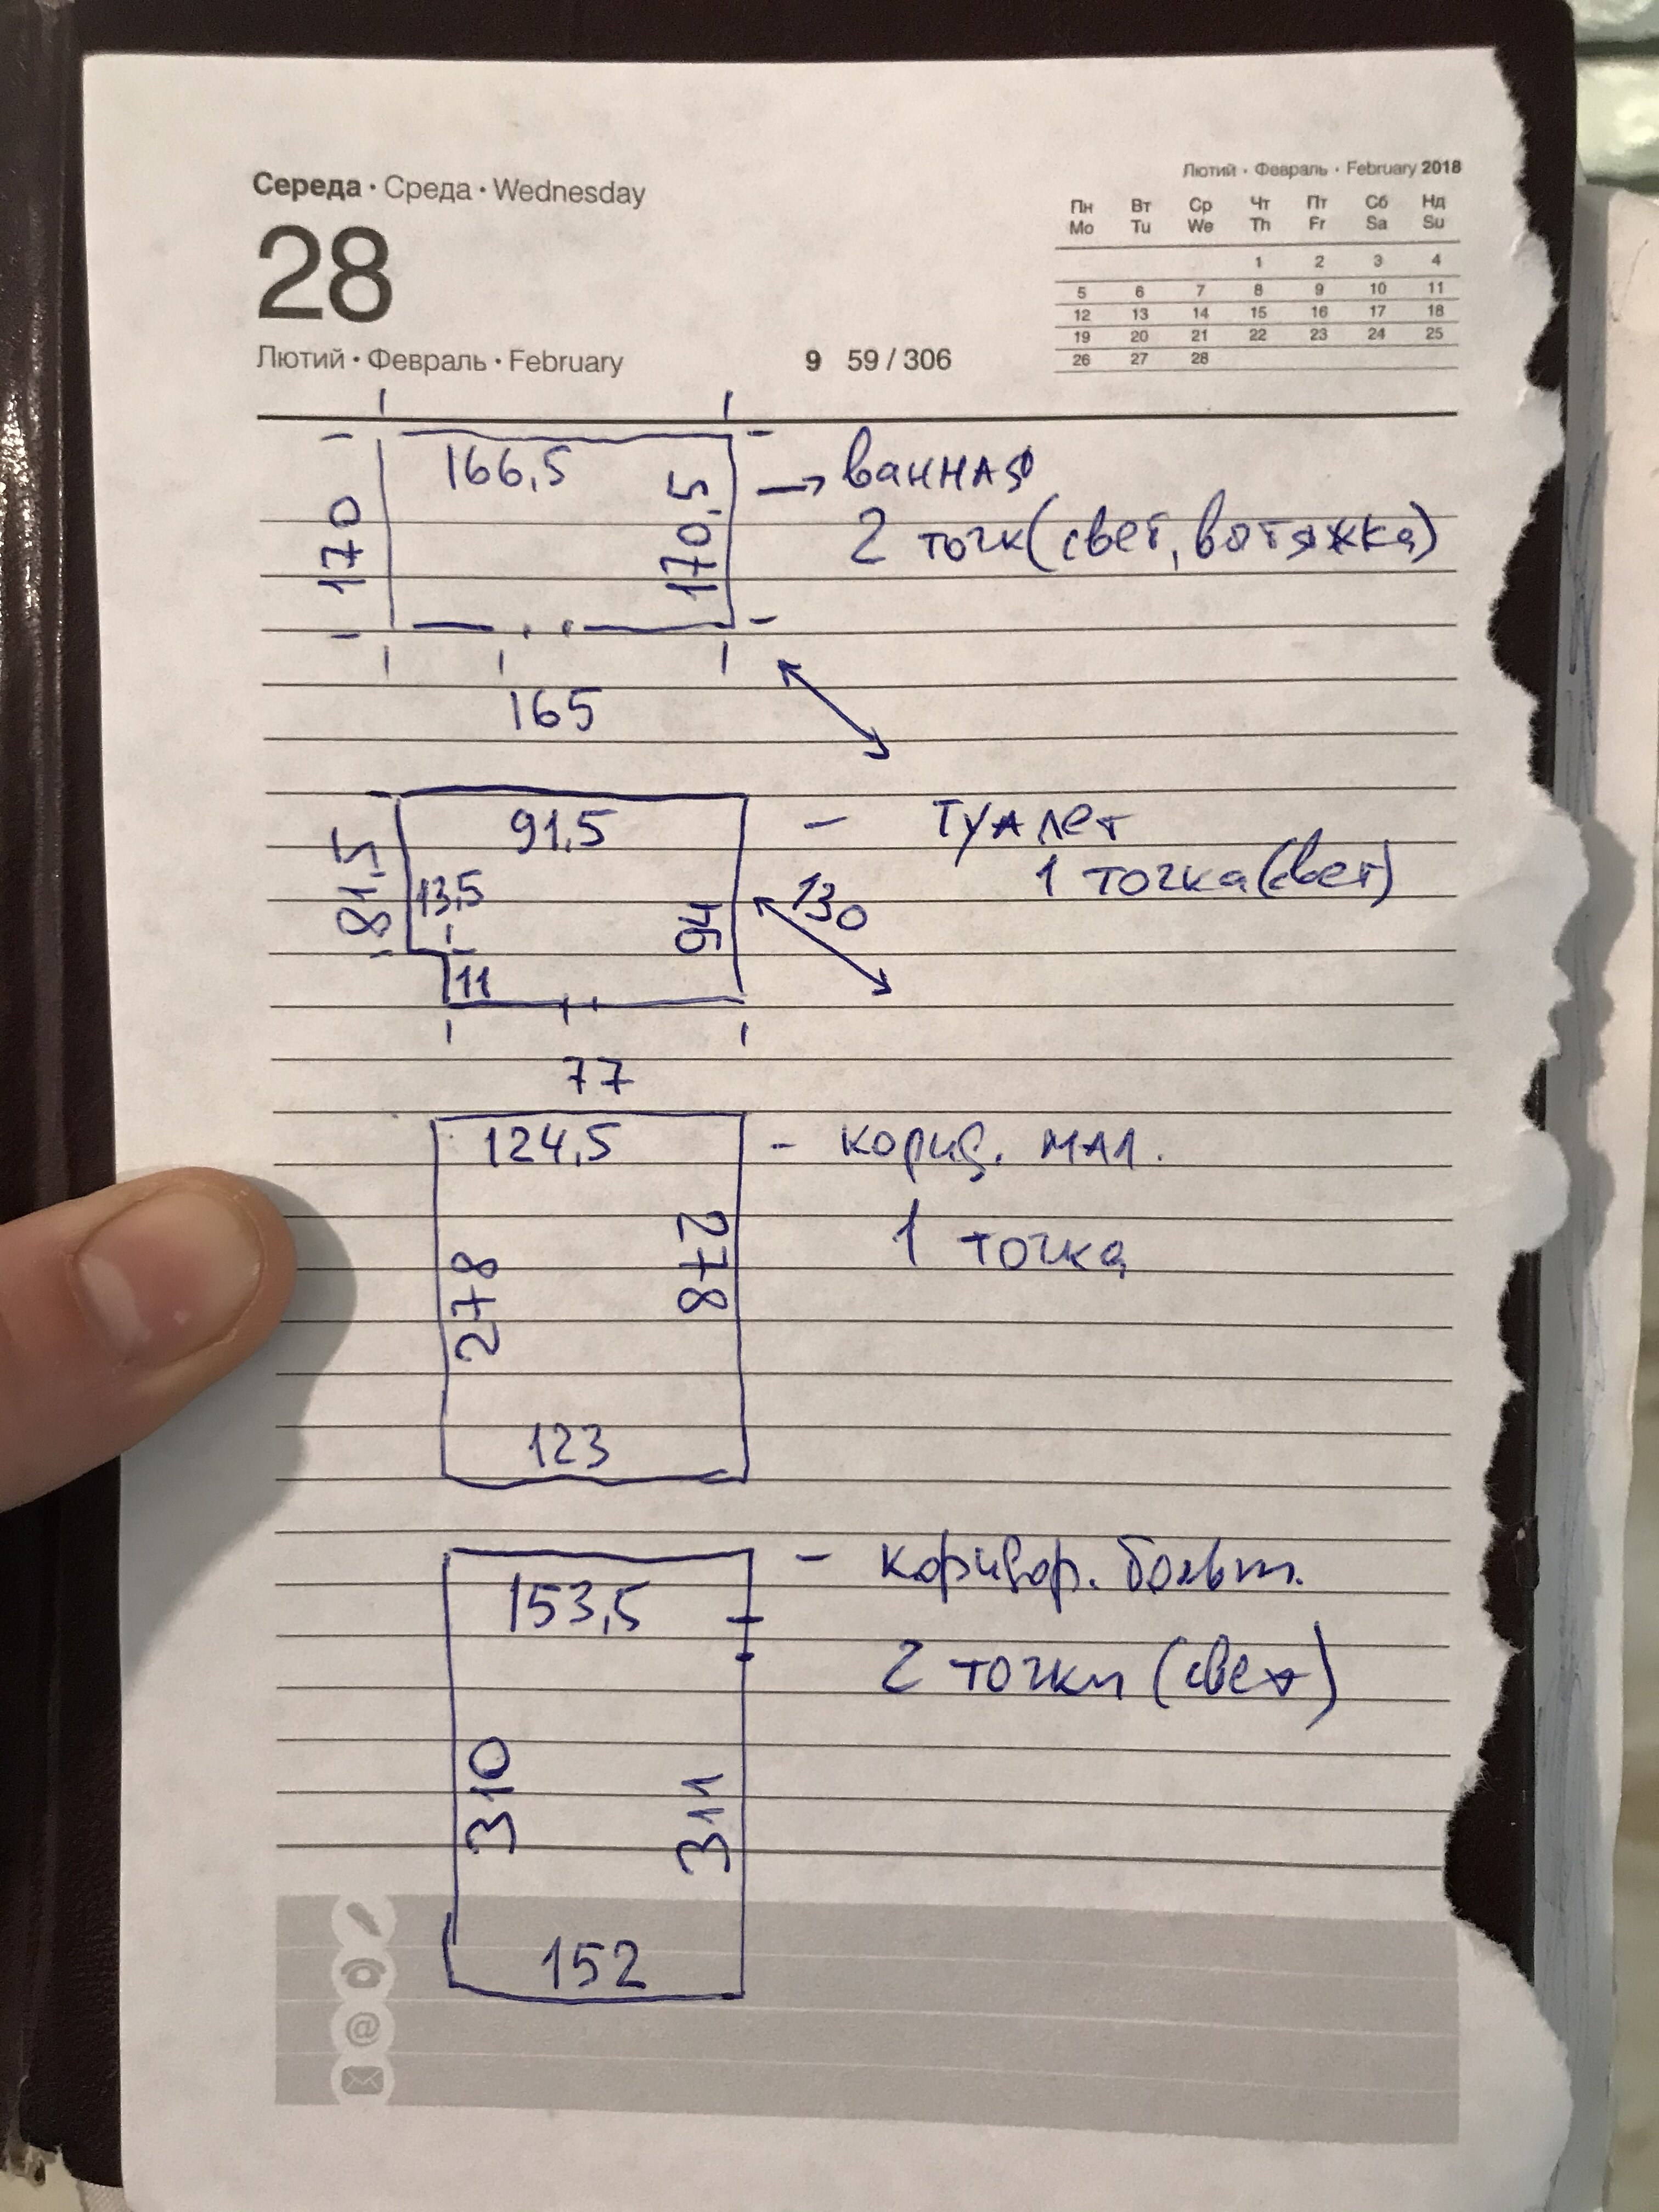 Середа · Среда · Wednesday
28
Лютий · Февраль · February
9 59 / 306
Лютий · Февраль · February 2018
Пн Вт Ср Чт Пт Сб Нд
Mo Tu We Th Fr Sa Su
1 2 3 4
5 6 7 8 9 10 11
12 13 14 15 16 17 18
19 20 21 22 23 24 25
26 27 28
166,5
170
170,5
165
→ ванная
2 точк (свет, вытяжка)
91,5
81,5
13,5
94
11
77
130
- Туалет
1 точка (свет)
124,5
278
278
123
- корид. мал.
1 точка
153,5
310
311
152
- коридор. больш.
2 точки (свет)
@